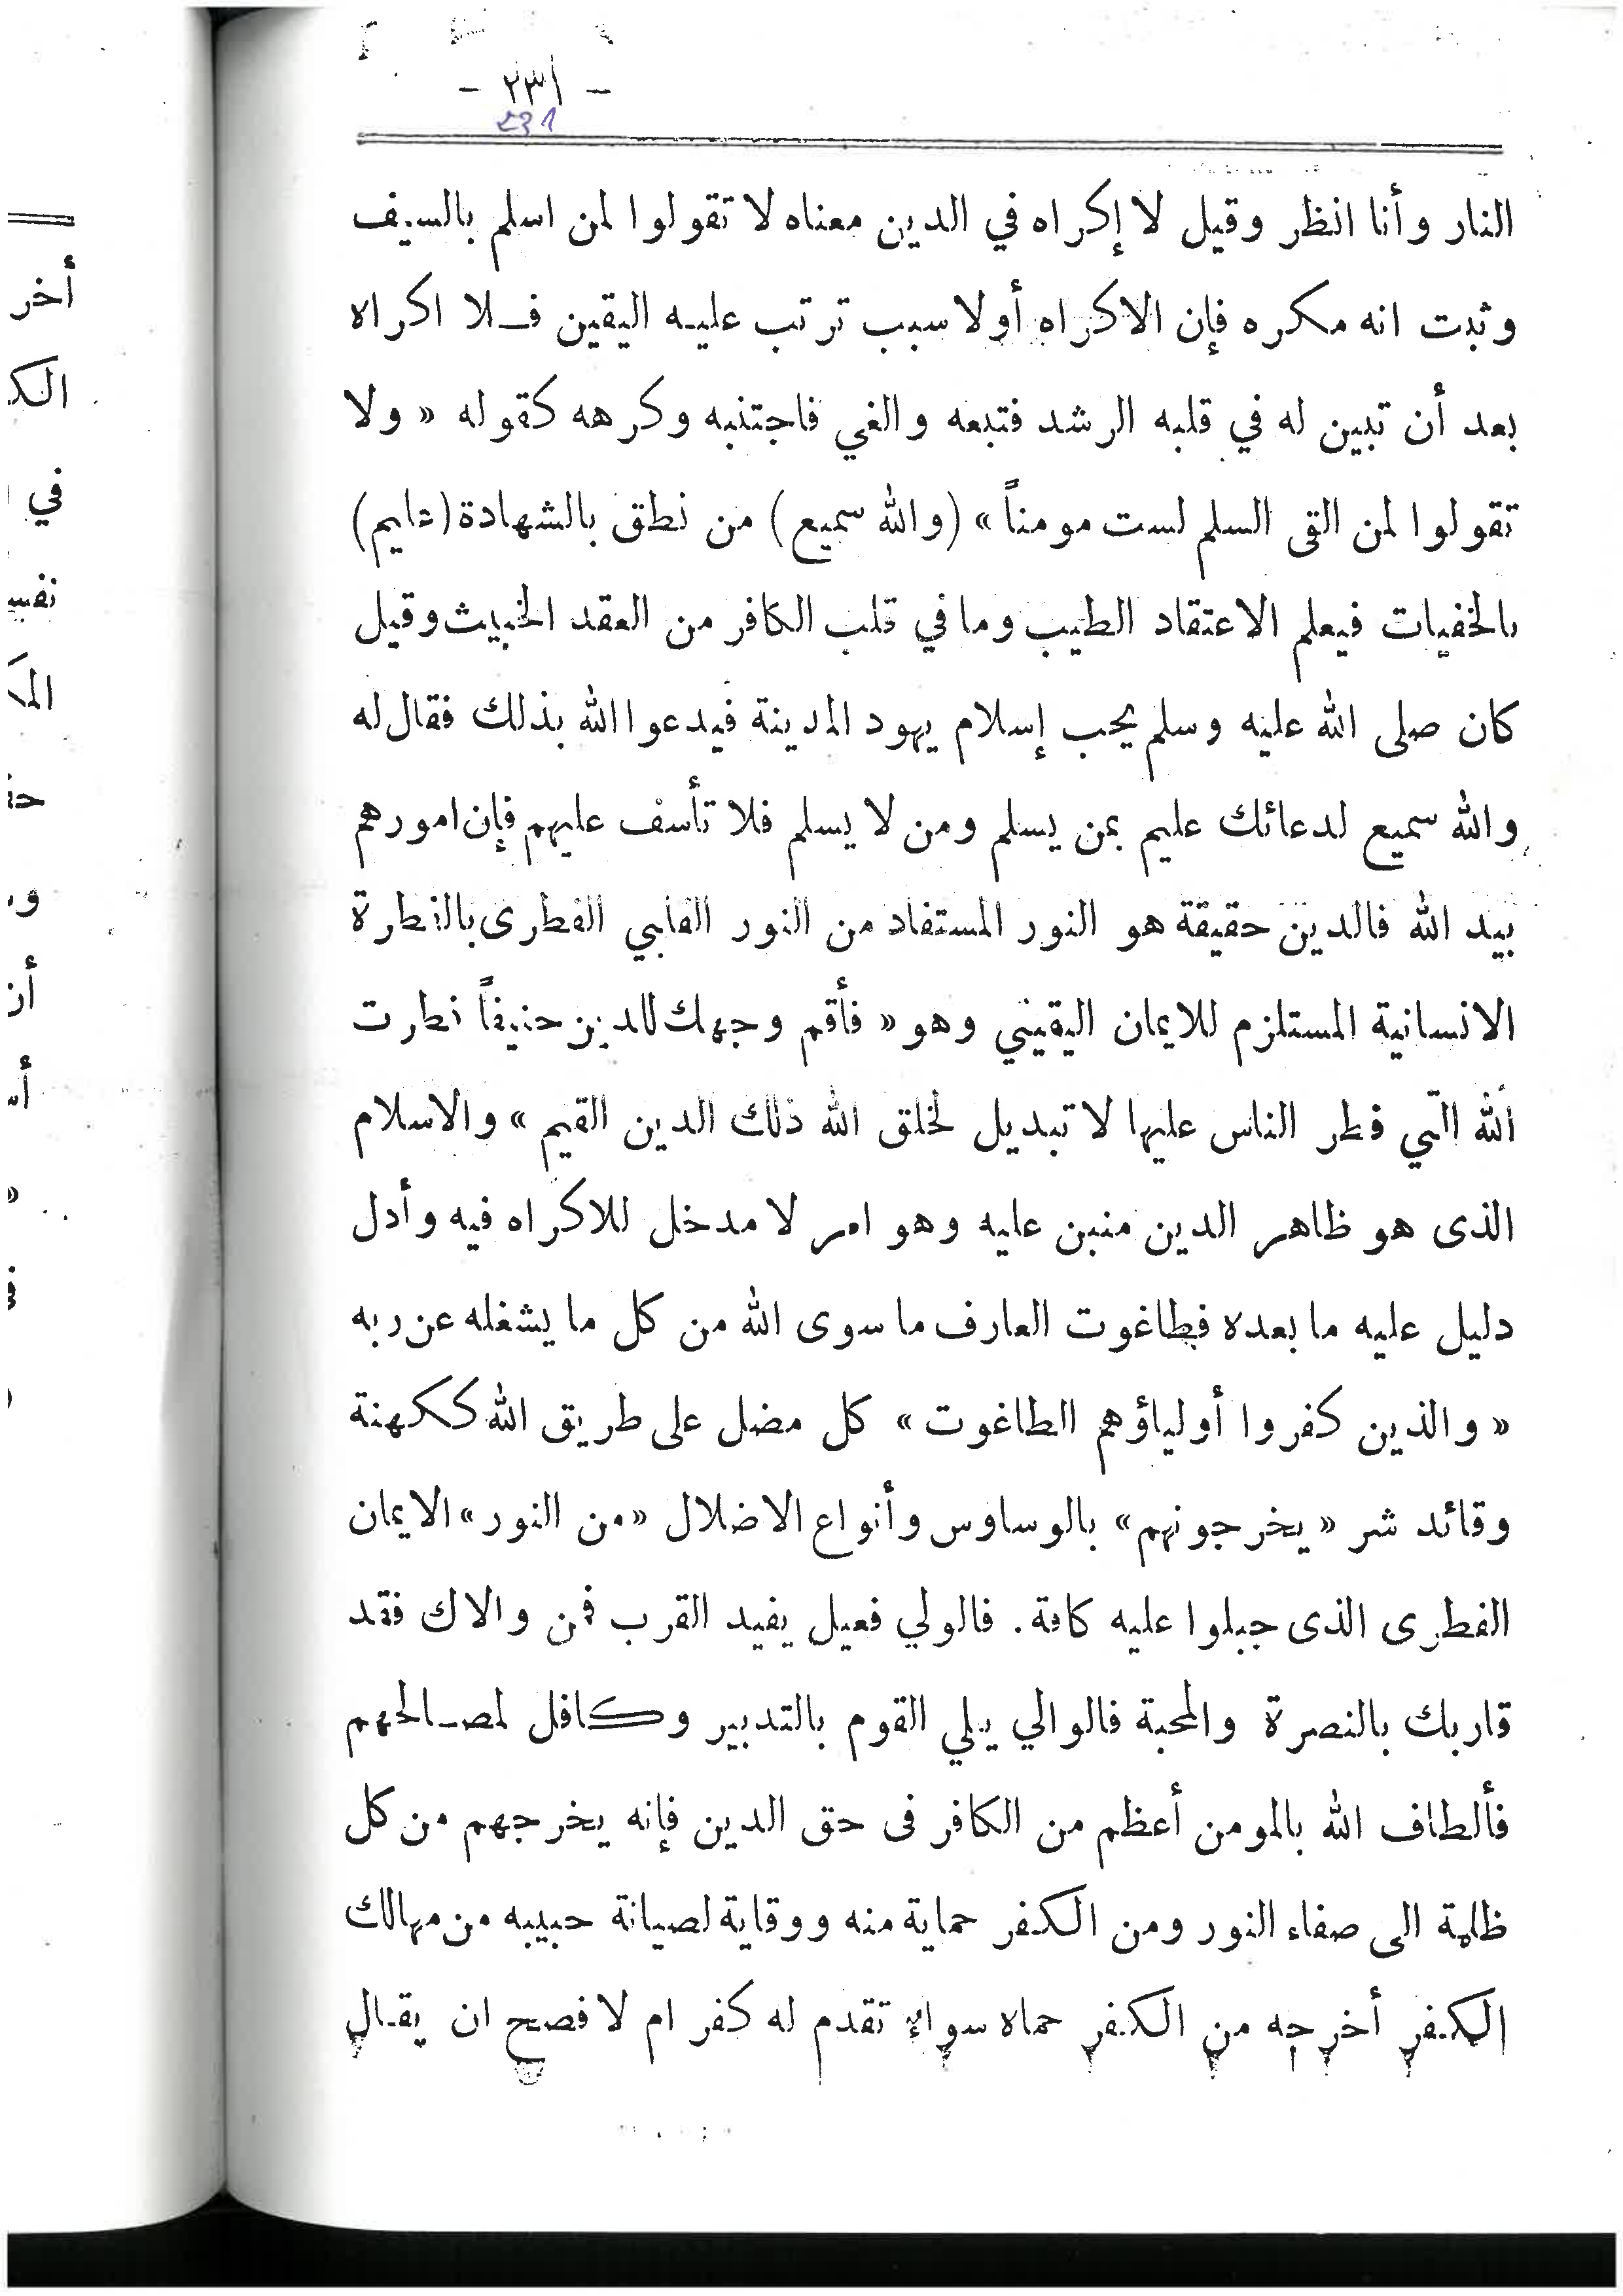 - ٢٣١ -
231
النار وأنا انظر وقيل لا إكراه في الدين معناه لا تقولوا لمن اسلم بالسيف
وثبت انه مكره فإن الاكراه أولا سبب ترتب عليه اليقين فلا اكراه
بعد أن تبين له في قلبه الرشد فتبعه والغي فاجتنبه وكرهه كقوله « ولا
تقولوا لمن القى السلم لست مومناً » (والله سميع) من نطق بالشهادة (عليم)
بالخفيات فيعلم الاعتقاد الطيب وما في قلب الكافر من العقد الخبيث وقيل
كان صلى الله عليه وسلم يحب إسلام يهود المدينة فيدعوا الله بذلك فقال له
والله سميع لدعائك عليم بمن يسلم ومن لا يسلم فلا تأسف عليهم فإن امورهم
بيد الله فالدين حقيقة هو النور المستفاد من النور القلبي الفطرى بالفطرة
الانسانية المستلزم للايمان اليقيني وهو « فأقم وجهك للدين حنيفاً فطرت
الله التي فطر الناس عليها لا تبديل لخلق الله ذلك الدين القيم » والاسلام
الذى هو ظاهر الدين منبن عليه وهو امر لا مدخل للاكراه فيه وأدل
دليل عليه ما بعده فطاغوت العارف ما سوى الله من كل ما يشغله عن ربه
« والذين كفروا أولياؤهم الطاغوت » كل مضل على طريق الله ككهنة
وقائد شر « يخرجونهم » بالوساوس وأنواع الاضلال « من النور » الايمان
الفطرى الذى جبلوا عليه كافة . فالولي فعيل يفيد القرب فمن والاك فقد
قاربك بالنصرة والمحبة فالوالي يلي القوم بالتدبير وكافل لمصالحهم
فألطاف الله بالمومن أعظم من الكافر فى حق الدين فإنه يخرجهم من كل
ظلمة الى صفاء النور ومن الكفر حماية منه ووقاية لصيانة حبيبه من مهالك
الكفر أخرجه من الكفر حماه سواء تقدم له كفر ام لا فصح ان يقال